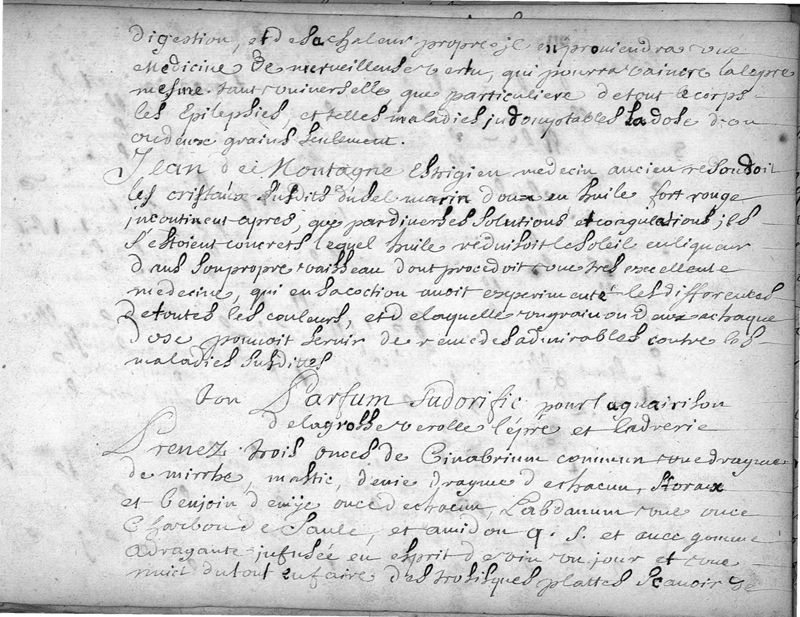 digestion, et de sa chaleur propre il en proviendra une
medicine de merveilleuse vertu, qui pourra vaincre la lepre
mesme tant universelle que particuliere de tout le corps
les Epilepsies, et telles maladies indomptables la dose d'un
ou deux grains seulement.
Jean de Montagne medecin ancien resoudoit
les cristaux susdits du sel marin doux en huile fort rouge
incontinent apres, que par diverses solutions et coagulations ils
s'estoient concrets lequel huile reduisoit le soleil en liqueur
dans son propre vaisseau dont procedoit une tres excellente
medecine, qui en sa coction avoit experimenté les differentes
de toutes les couleurs, et de laquelle un grain ou deux a chaque
dose pouvoit servir de remedes admirables contre les
maladies susdittes
Ion Parfum sudorific pour la guairison
de la grosse verolle lepre et ladrerie
Prenez trois onces de Cinabrium commun une dragme
de mirrhe, mastic, demie dragme de chacun, storax
et benjoin demije once de chacun, Labdanum une once
Charbon de Saule, et amidon q. s. et avec gomme
adragante infusée en esprit de vin un jour et une
nuict du tout en faire des trosisques plattes scavoir